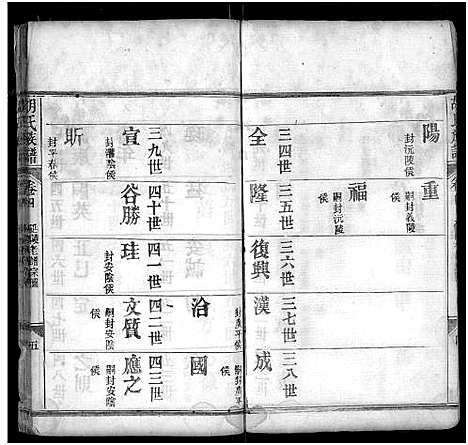 陽
封沅陵侯
重
嗣封義陵侯
福
嗣封沅陵侯
三四世
三五世
三六世
三七世
三八世
全
隆
復興
漢
成
洽
國
三九世
四十世
四一世
四二世
四三世
宣
封灌陰侯
谷勝
珪
封安陰侯
文質
嗣封安陰侯
應之
嗣封安陰侯
昕
封平春侯
胡氏族譜
卷四
五